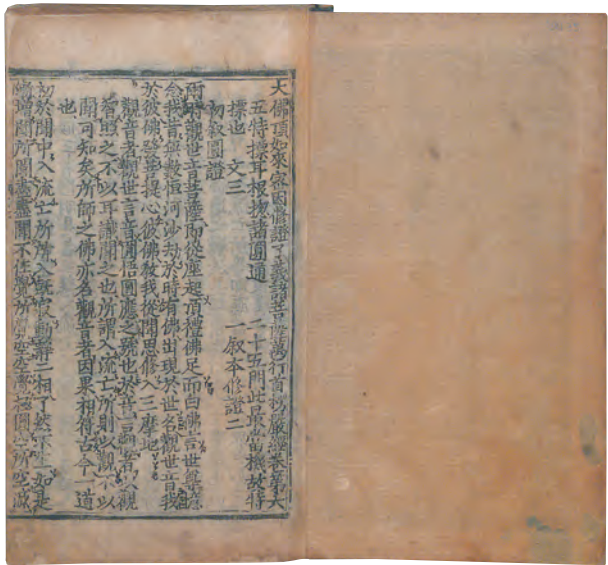 大佛頂如來密因修證了義諸菩薩萬行首楞嚴經卷第六
五特摽耳根撥諸圓通　二十五門此最當機故特
摽也　文三　一叙本修證二
初叙圓證
爾時觀世音菩薩即從座起頂禮佛足而白佛言世尊憶
念我昔無數恒河沙劫於時有佛出現於世名觀世音我
於彼佛發菩提心彼佛教我從聞思修入三摩地
觀音者觀世言音圓悟圓應之號也於音言觀者以觀
智照之不以耳識聞之也所謂入流亡所則以觀不以
聞可知矣所師之佛亦名觀音者因果相符古今一道
也
初於聞中入流亡所所入旣寂動靜二相了然不生如是
漸增聞所聞盡盡聞不住覺所覺空空覺極圓空所空滅